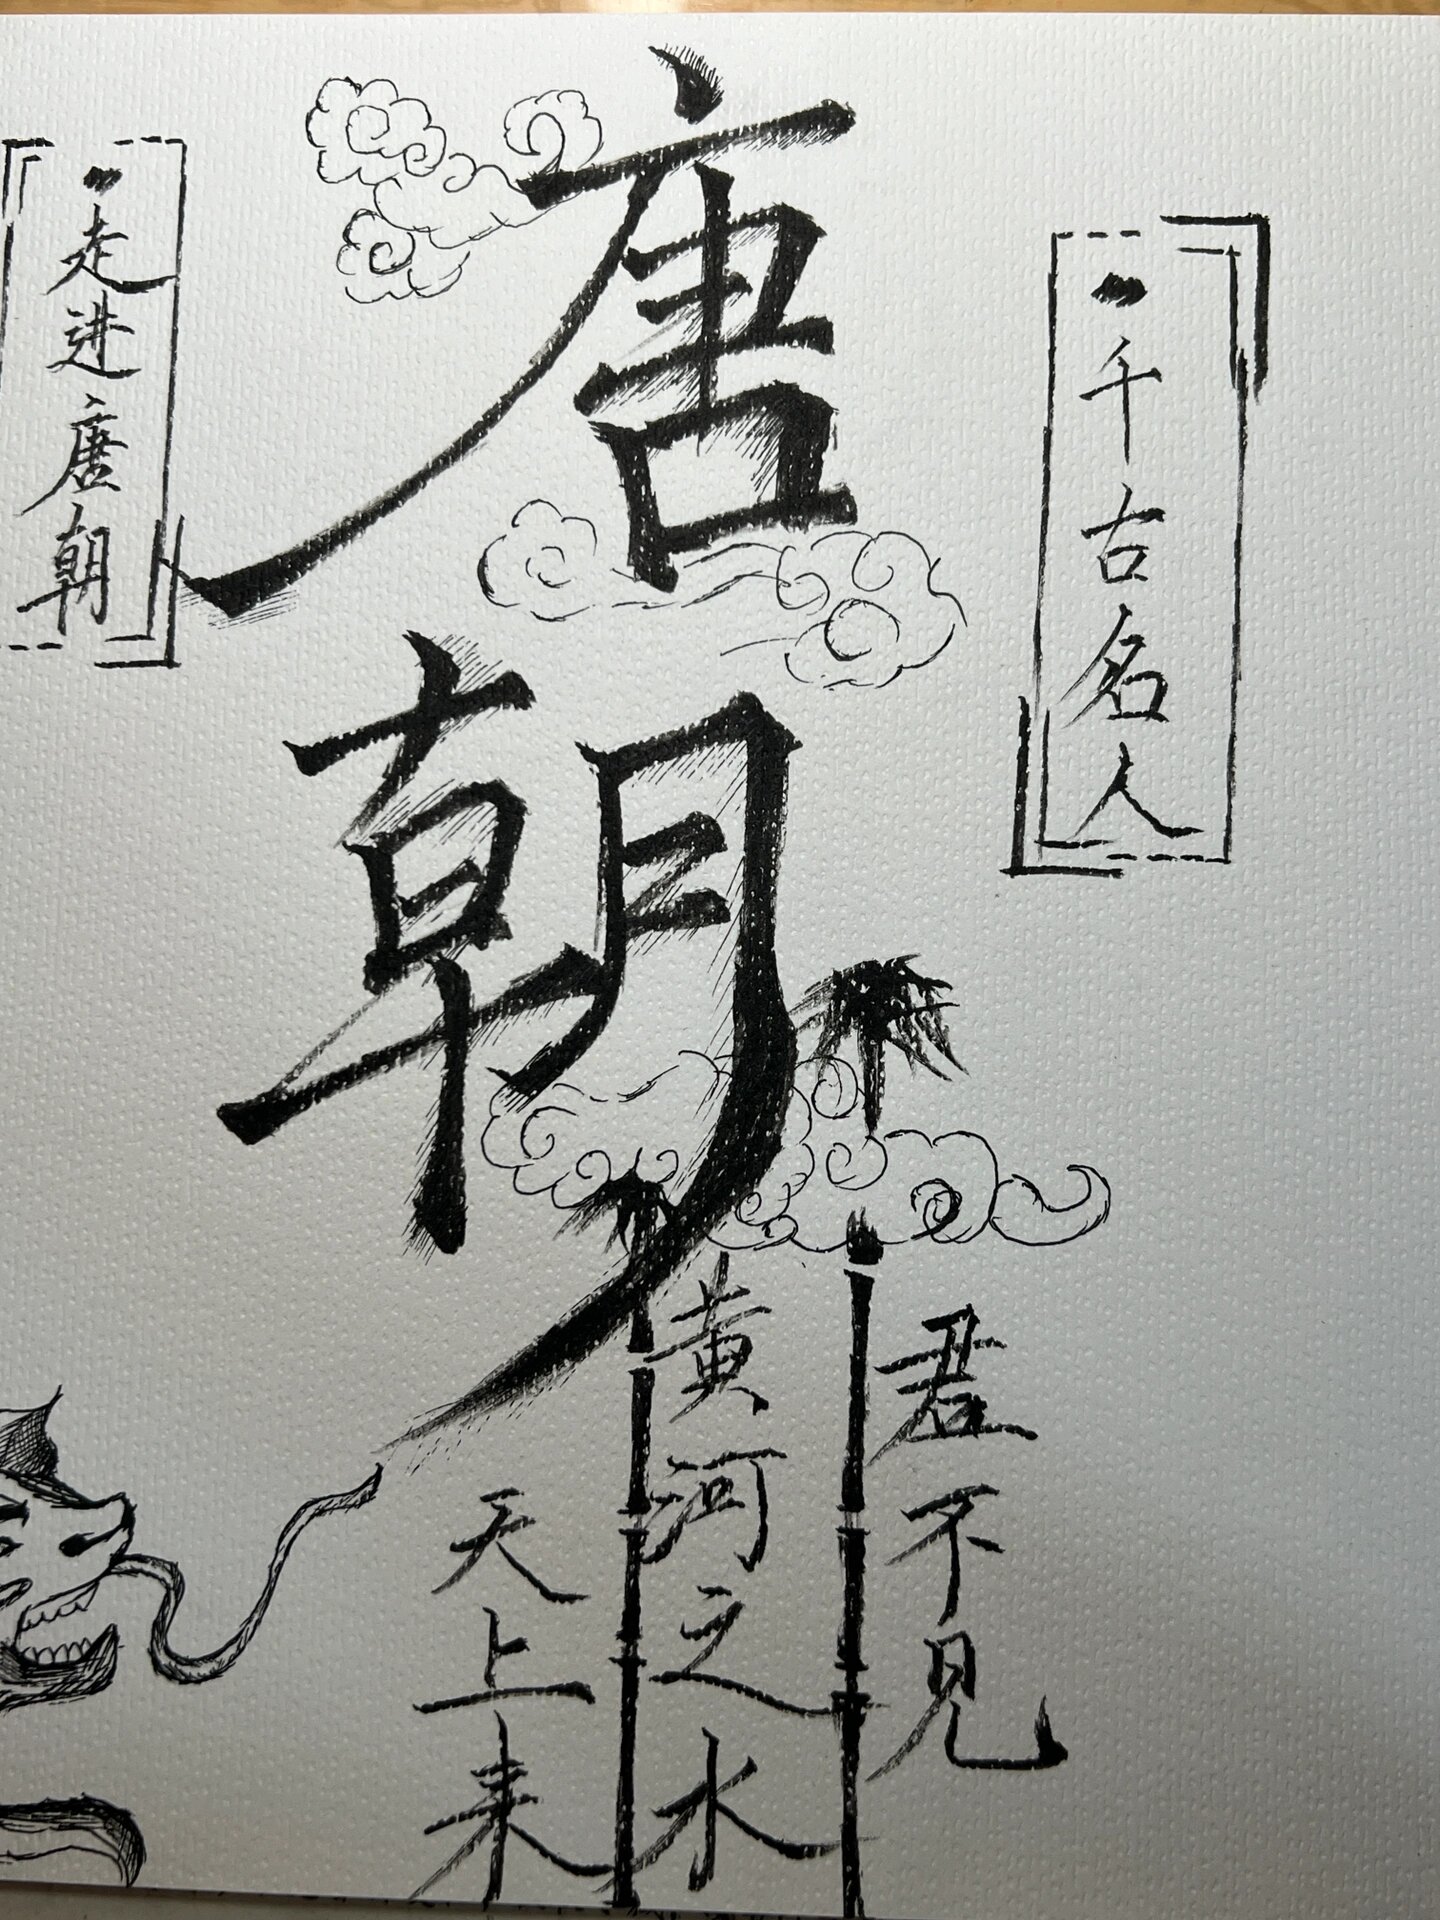 唐朝
千古名人
走进唐朝
君不见
黄河之水
天上来